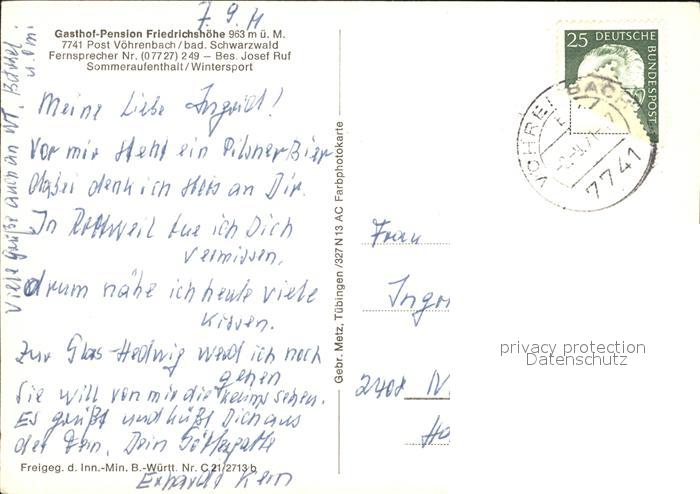 7.9.71
Gasthof-Pension Friedrichshöhe 963 m ü. M.
7741 Post Vöhrenbach / bad. Schwarzwald
Fernsprecher Nr. (07727) 249 – Bes. Josef Ruf
Sommeraufenthalt / Wintersport
Meine Liebe Ingrid!
Vor mir steht ein Pilsner Bier
dabei denk ich stets an Dir.
In Rottweil tue ich Dich
vermissen,
drum nähe ich heute viele
Kissen.
Zur Glas-Hedwig werd ich noch
gehen
Sie will von mir die sehen.
Es grüßt und küßt Dich aus
der Fern, Dein Göttergatte
Erhardt Kern
Viele Grüße auch an
u. Omi
Freigeg. d. Inn.-Min. B.-Württ. Nr. C 21/2713 b
Gebr. Metz, Tübingen /327 N 13 AC Farbphotokarte
25 DEUTSCHE
BUNDESPOST
VÖHRENBACH
7741
Frau
Ingri
2408 N
Ha
privacy protection
Datenschutz